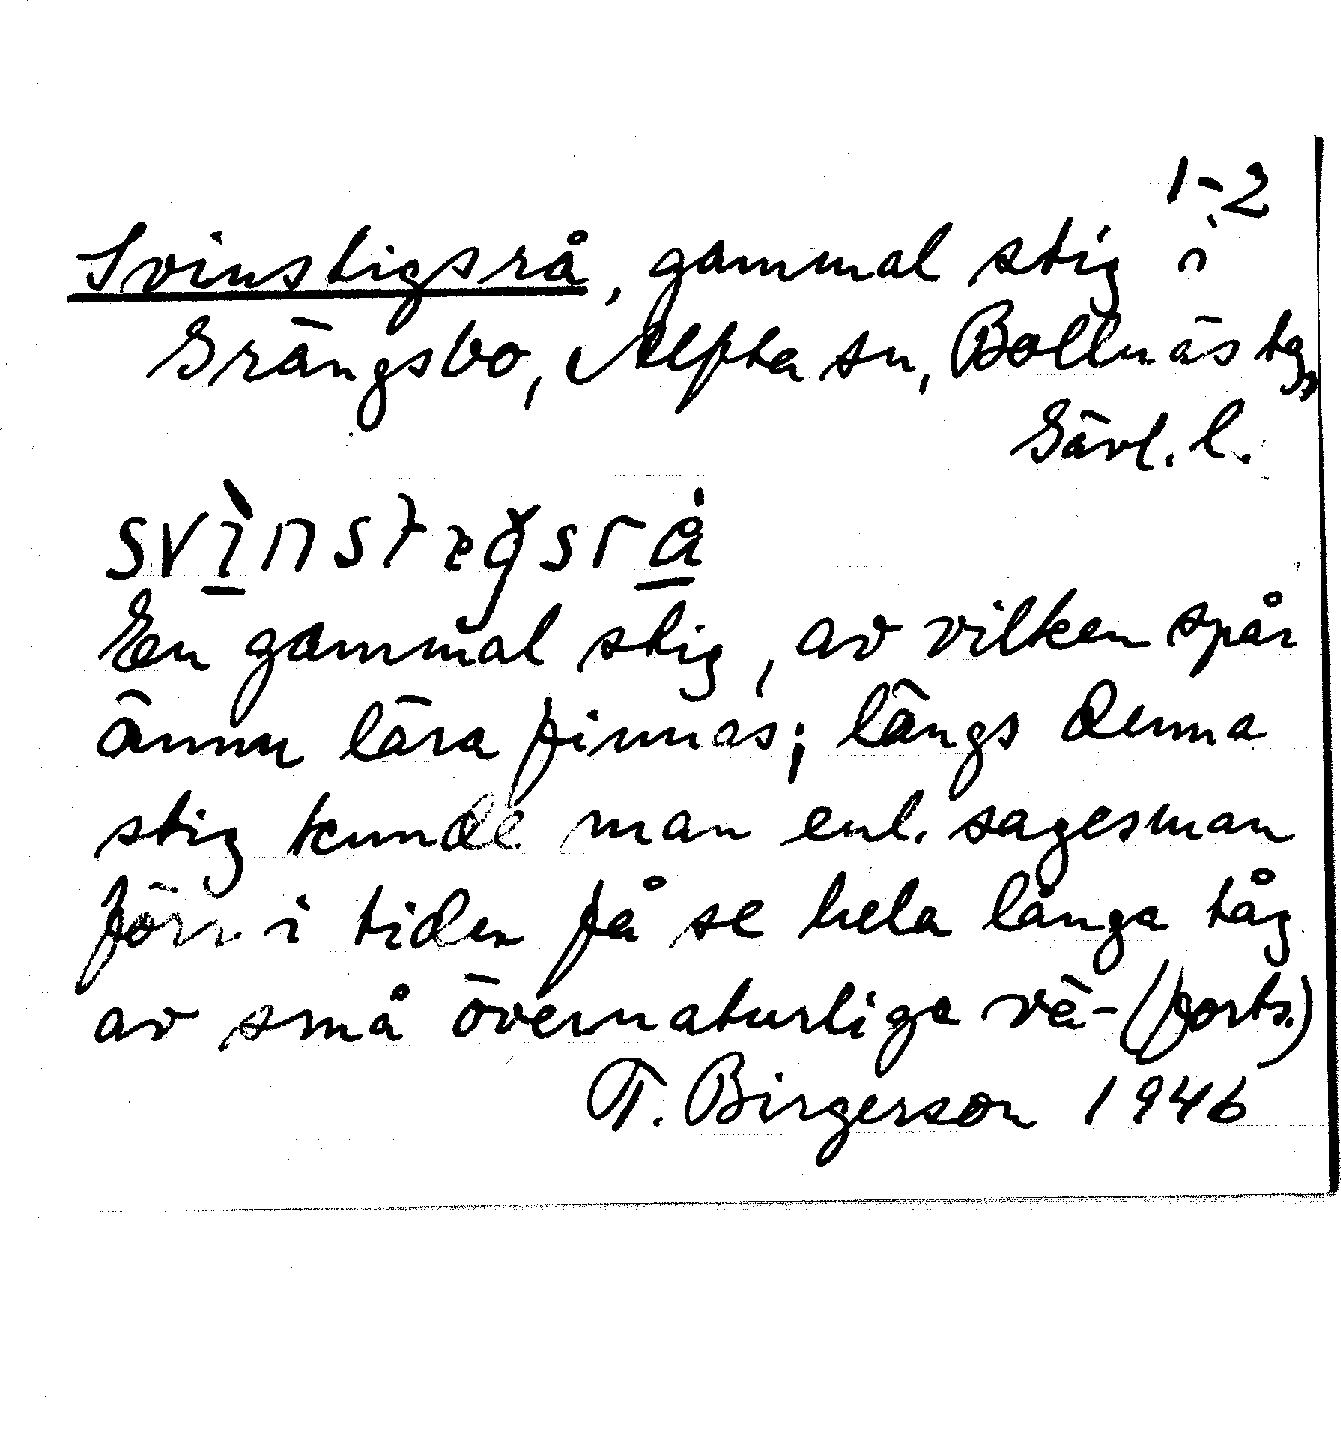 1-2
Svinstigsrå, gammal stig i
Grängsbo, Alfta sn, Bollnäs tg,
Gävl. l.
En gammal stig, av vilken spår
ännu lära finnas; längs denna
stig kunde man enl. sagesman
förr i tiden få se hela långa tåg
av små övernaturliga vä- (forts.)
T. Birgerson 1946